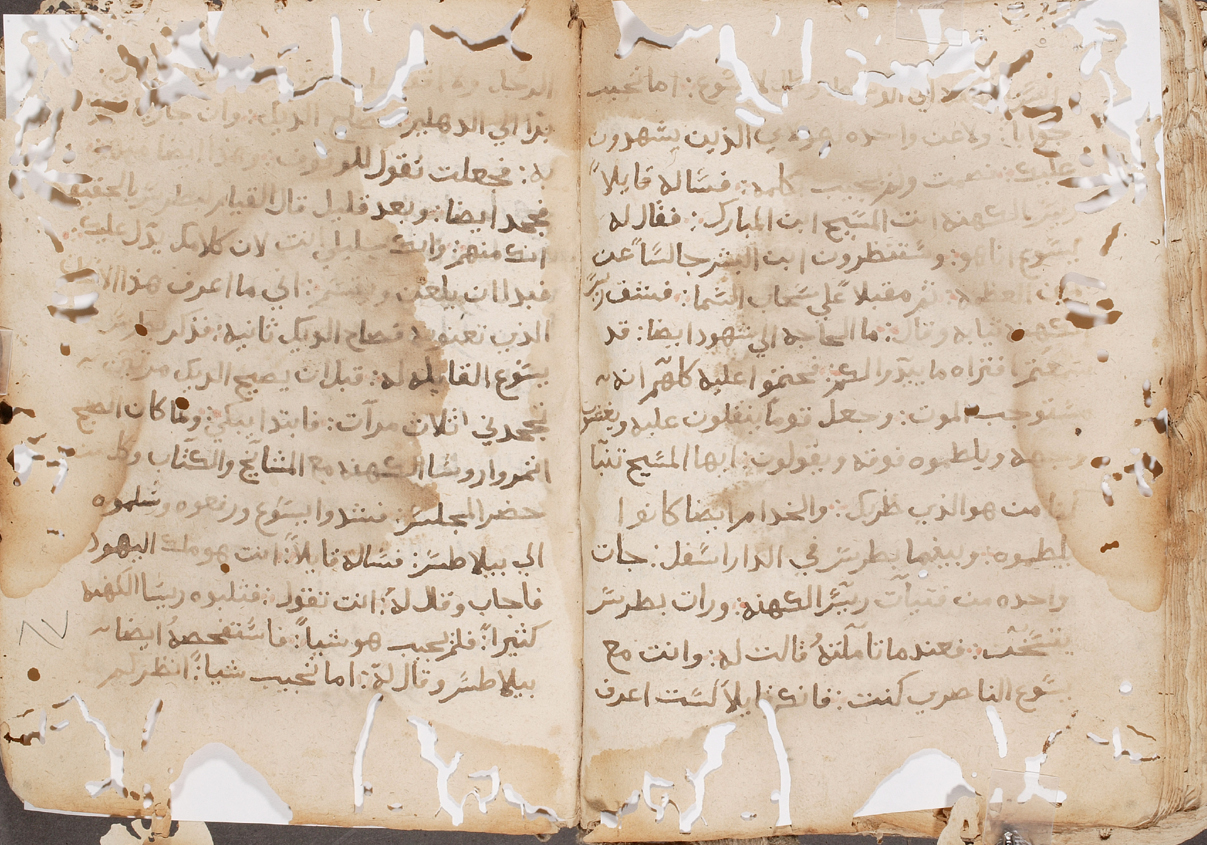 يسوع: اما تجيب
جوابا: ولاعن واحده الذين يشهدون
عليك: فصمت ولم يجيب بكلمه: فساله قايلا
ريس الكهنه انت المسيح ابن المبارك: فقال له
يسوع انا هو: وستنظرون ابن البشر جالسا عن
يمين العظمه: ثم مقبلا علي سحاب السما: فشف ريس
الكهنه ثيابه وقال: ما الحاجه الي شهود ايضا: قد
سمعتم افتراه ما يبدر الكم: فحتموا عليه كلهم انه
مستوجب الموت: وجعل قوما يتفلون عليه ويغطون
وجهه ويلطموه فوقه ويقولون: ايها المسيح تنبا
لنا من هو الذي ظربك: والخدام ايضا كانوا
يلطموه: وبينما بطرس في الدار اسفل: جات
واحده من فتيات ريس الكهنه: ورات بطرس
يتسخن: فعندما تاملته قالت له: وانت مع
يسوع الناصري كنت: فانكر قايلا لست اعرف
الرجل
برا الي الدهليز: فصاح الديك: وان جاريه
له: فجعلت تقول للوقوف: وهذا ايضا منهم
فجحد ايضا: وبعد قليل قال القيام لبطرس بالحقيقه
انك منهم وانك جليلي انت لان كلامك يدل عليك
فبدا ان يلعن ويقسم: اني ما اعرف هذا الانسان
الذي تعنوا به فصاح الديك ثانيه: فذكر بطرس
يسوع القايله له: قبل ان يصيح الديك مرتين
تجحدني اثلات مرات: فابتدا يبكي: ولما كان الصبح
اتمروا روسا الكهنه مع المشايخ والكتاب وكل من
حضر المجلس: فشدوا يسوع ورفعوه وسلموه
الي بيلاطس: فساله قايلا: انت هو ملك اليهود
فاجاب وقال له: انت تقول: فثلبوه ريسا الكهنه
كثيرا: فلم يجيب هو شيا: فاستفحصه ايضا
بيلاطس وقال له: اما تجيب شيا: انظر كم